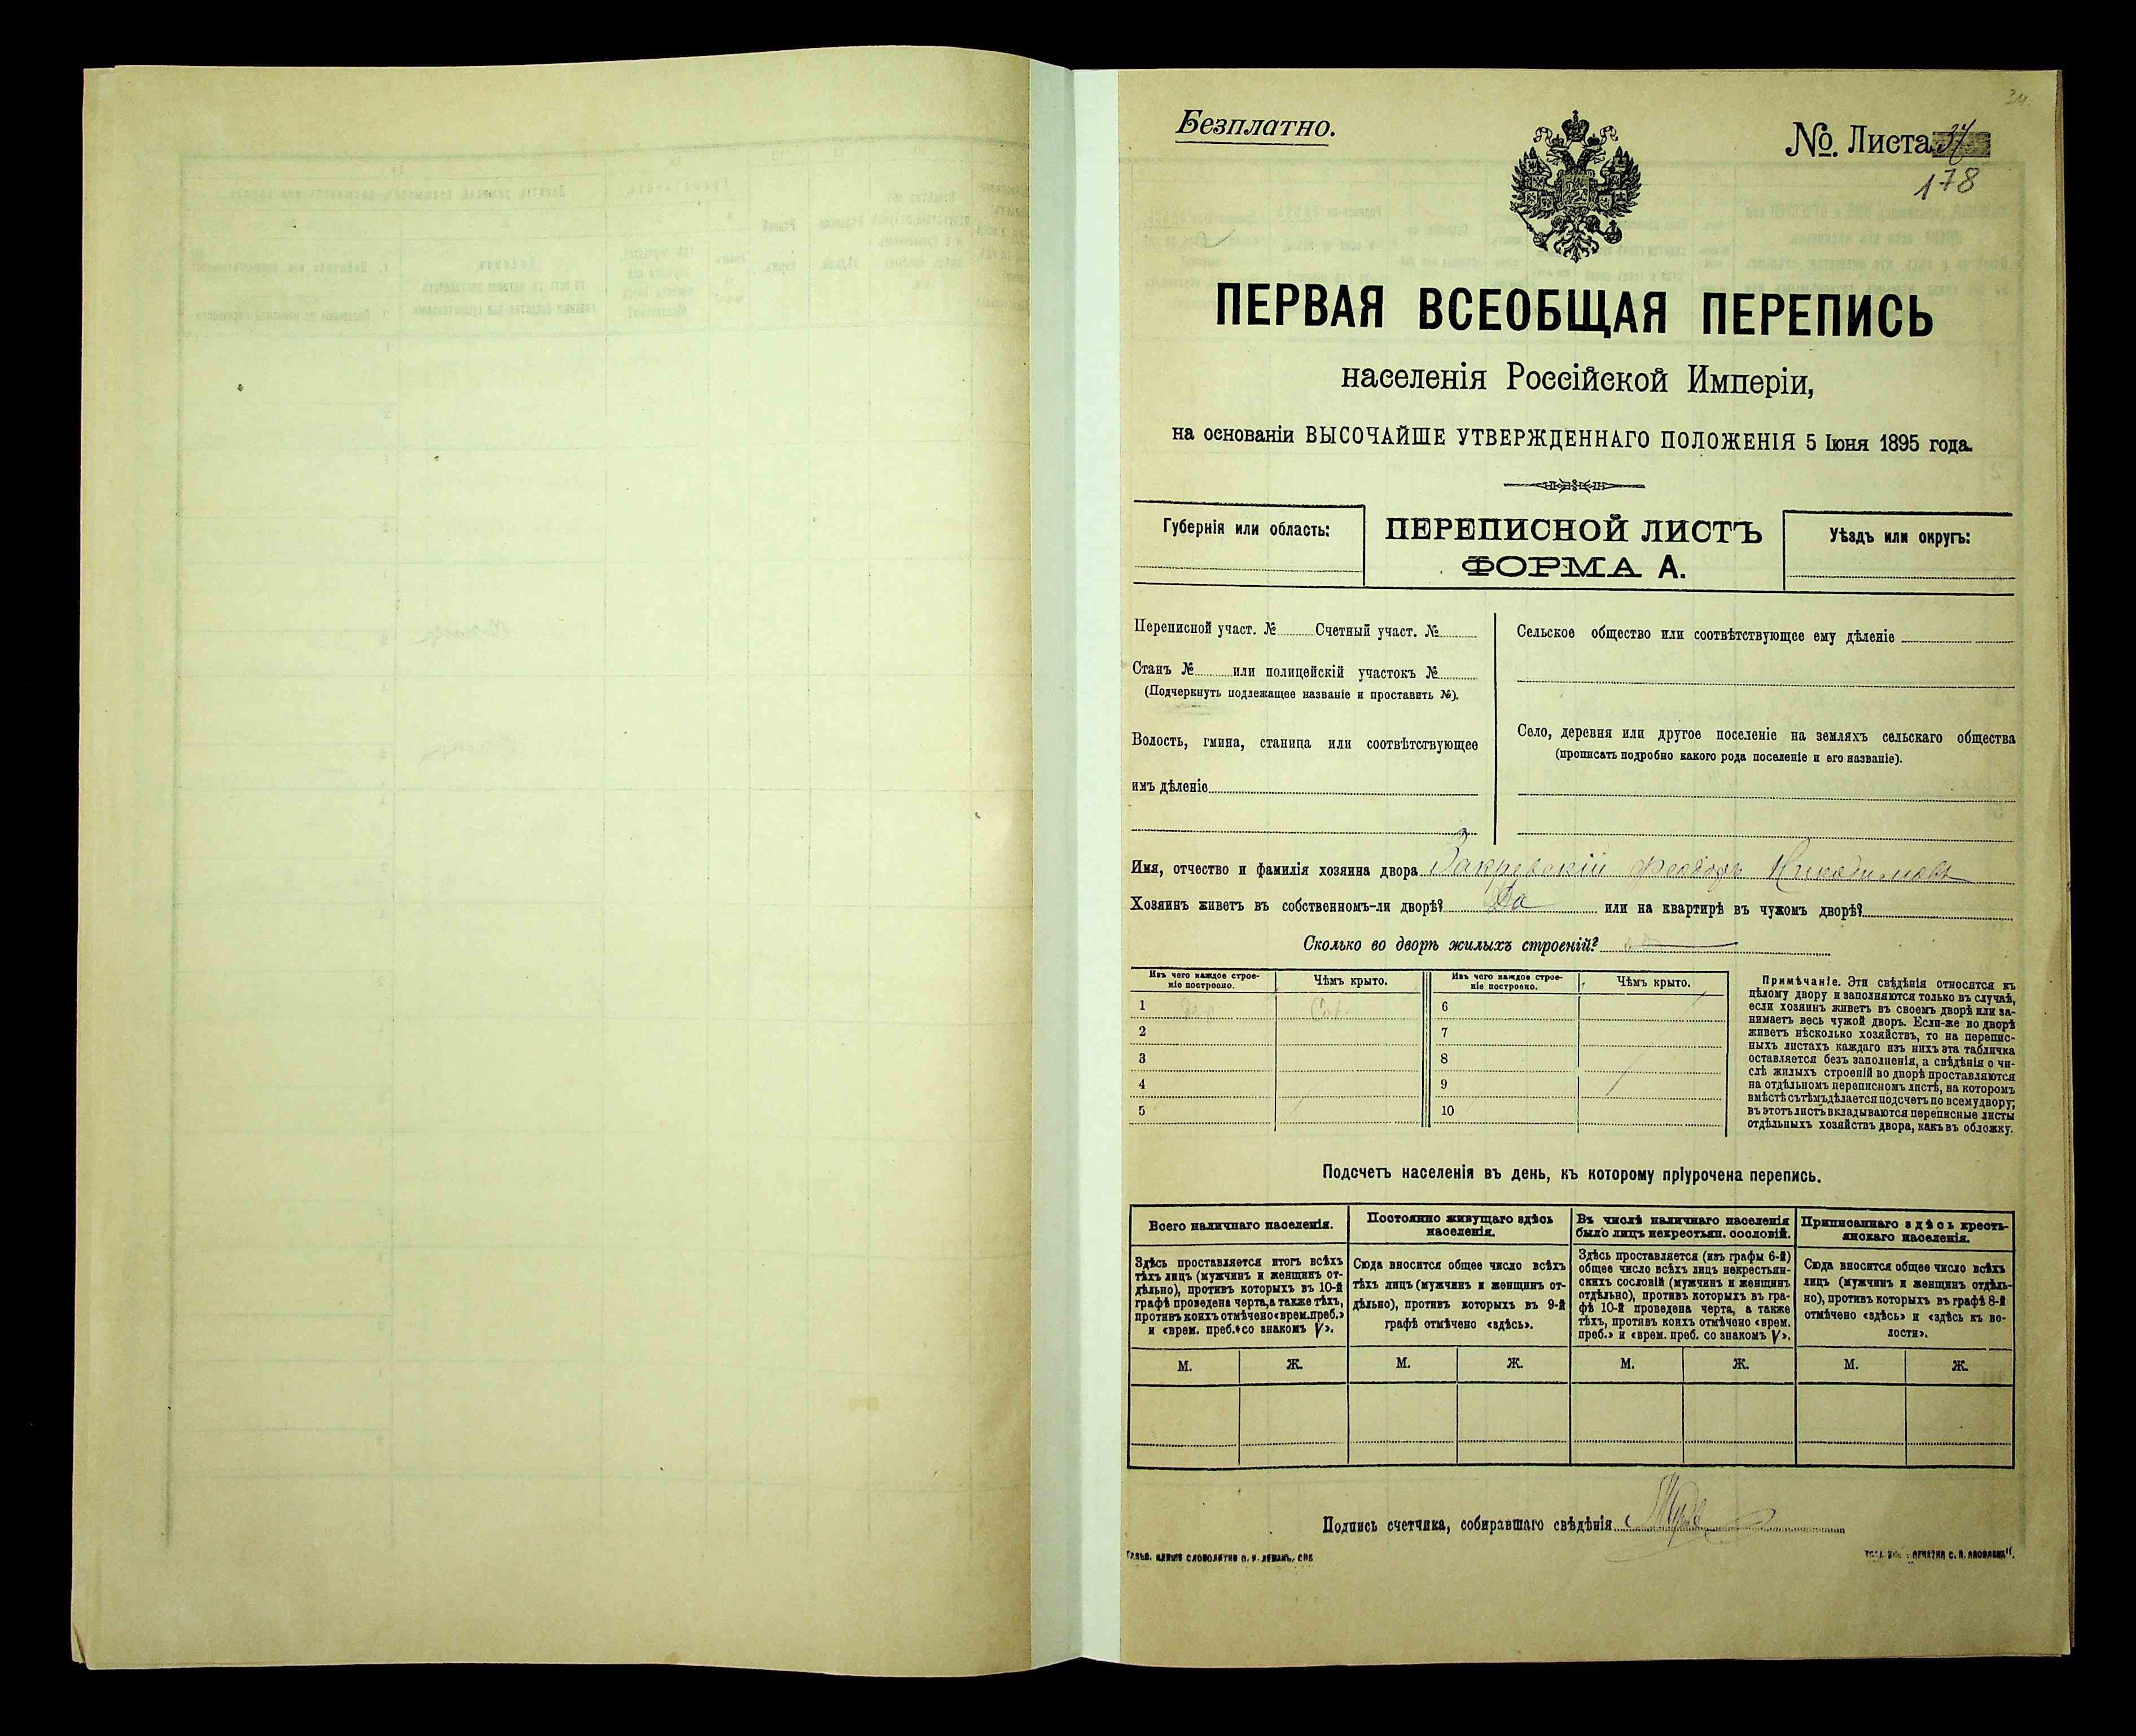 34.
Безплатно.
№. Листа 37
178
ПЕРВАЯ ВСЕОБЩАЯ ПЕРЕПИСЬ
населенія Россійской Имперіи,
на основаніи ВЫСОЧАЙШЕ УТВЕРЖДЕННАГО ПОЛОЖЕНІЯ 5 Іюня 1895 года.
Губернія или область:
ПЕРЕПИСНОЙ ЛИСТЪ
ФОРМА А.
Уѣздъ или округъ:
Переписной участ. № Счетный участ. №
Станъ № или полицейскій участокъ №
(Подчеркнуть подлежащее названіе и проставить №).
Волость, гмина, станица или соотвѣтствующее
имъ дѣленіе
Сельское общество или соотвѣтствующее ему дѣленіе
Село, деревня или другое поселеніе на земляхъ сельскаго общества
(прописать подробно какого рода поселеніе и его названіе).
Имя, отчество и фамилія хозяина двора Закревскій Феодоръ Никодимовъ
Хозяинъ живетъ въ собственномъ-ли дворѣ? Да или на квартирѣ въ чужомъ дворѣ?
Сколько во дворѣ жилыхъ строеній?
Изъ чего каждое строе-
ніе построено.
Чѣмъ крыто.
Изъ чего каждое строе-
ніе построено.
Чѣмъ крыто.
1 6
2 7
3 8
4 9
5 10
Примѣчаніе. Эти свѣдѣнія относятся къ
цѣлому двору и заполняются только въ случаѣ,
если хозяинъ живетъ въ своемъ дворѣ или за-
нимаетъ весь чужой дворъ. Если-же во дворѣ
живетъ нѣсколько хозяйствъ, то на перепис-
ныхъ листахъ каждаго изъ нихъ эта табличка
оставляется безъ заполненія, а свѣдѣнія о чи-
слѣ жилыхъ строеній во дворѣ проставляются
на отдѣльномъ переписномъ листѣ, на которомъ
вмѣстѣ съ тѣмъ дѣлается подсчетъ по всему двору;
въ этотъ листъ вкладываются переписные листы
отдѣльныхъ хозяйствъ двора, какъ въ обложку.
Подсчетъ населенія въ день, къ которому пріурочена перепись.
Всего наличнаго населенія.
Здѣсь проставляется итогъ всѣхъ
тѣхъ лицъ (мужчинъ и женщинъ от-
дѣльно), противъ которыхъ въ 10-й
графѣ проведена черта, а также тѣхъ,
противъ коихъ отмѣчено «врем. преб.»
и «врем. преб.» со знакомъ V».
Постоянно живущаго здѣсь
населенія.
Сюда вносится общее число всѣхъ
тѣхъ лицъ (мужчинъ и женщинъ от-
дѣльно), противъ которыхъ въ 9-й
графѣ отмѣчено «здѣсь».
Въ числѣ наличнаго населенія
было лицъ некрестьян. сословій.
Здѣсь проставляется (изъ графы 6-й)
общее число всѣхъ лицъ некрестьян-
скихъ сословій (мужчинъ и женщинъ
отдѣльно), противъ которыхъ въ гра-
фѣ 10-й проведена черта, а также
тѣхъ, противъ коихъ отмѣчено «врем.
преб.» и «врем. преб. со знакомъ V».
Приписаннаго здѣсь кресть-
янскаго населенія.
Сюда вносится общее число всѣхъ
лицъ (мужчинъ и женщинъ отдѣль-
но), противъ которыхъ въ графѣ 8-й
отмѣчено «здѣсь» и «здѣсь къ во-
лости».
М. Ж. М. Ж. М. Ж. М. Ж.
Подпись счетчика, собиравшаго свѣдѣнія